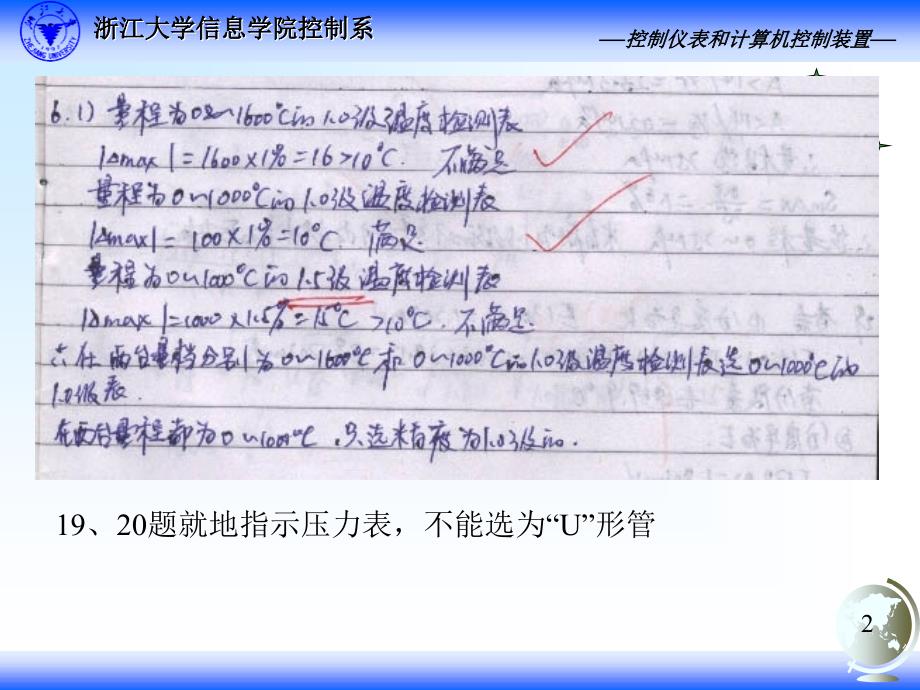 浙江大学信息学院控制系
——控制仪表和计算机控制装置——
ZHEJIANG UNIVERSITY
6.1) 量程为0~1600℃的1.0级温度检测表
|Δmax|=1600×1%=16>10℃. 不满足
量程为0~1000℃的1.0级温度检测表
|Δmax|=100×1%=10℃. 满足
量程为0~1000℃的1.5级温度检测表
|Δmax|=1000×1.5%=15℃>10℃. 不满足.
∴在两台量档分别为0~1600℃和0~1000℃的1.0级温度检测表选0~1000℃的
1.0级表.
在两台量程都为0~1000℃,只选精度为1.0级的.
19、20题就地指示压力表，不能选为“U”形管
2